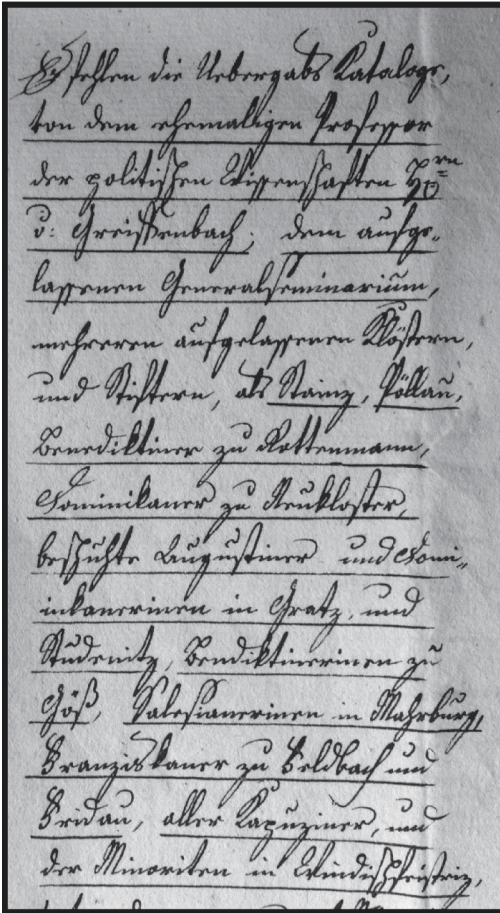 Es fehlen die Uebergabs Kataloge,
von dem ehemaligen Professor
der politischen Wissenschaften Hrn
v: Greissenbach; dem aufge„
lassenen Generalseminarium,
mehreren aufgelassenen Klöstern,
und Stiftern, als Stainz, Pöllau,
Benediktiner zu Rottenmann,
Dominikaner zu Neukloster,
beschuhte Augustiner und Domi„
inkanerinen in Gratz, und
Studenitz, Bendiktinerinen zu
Göß, Salesianerinen in Mahrburg,
Franziskaner zu Feldbach und
Fridau, aller Kapuziner, und
der Minoriten in Windischfeistriz,